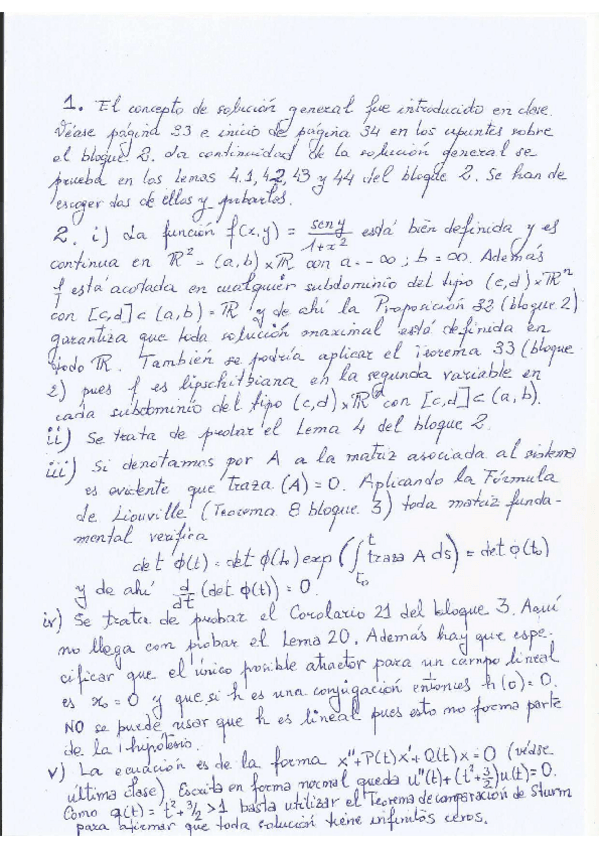 1. El concepto de solución general fue introducido en clase.
Véase página 33 e inicio de página 34 en los apuntes sobre
el bloque 2. La continuidad de la solución general se
prueba en los Lemas 41, 42, 43 y 44 del bloque 2. Se han de
escoger dos de ellos y probarlos.
2. i) La función f(x,y) = sen y / 1+x² está bien definida y es
continua en ℝ² = (a,b) × ℝ con a = -∞ ; b = ∞. Además
f está acotada en cualquier subdominio del tipo (c,d) × ℝⁿ
con [c,d] ⊂ (a,b) = ℝ y de ahí la Proposición 32 (bloque 2)
garantiza que toda solución maximal está definida en
todo ℝ. También se podría aplicar el Teorema 33 (bloque
2) pues f es lipschitziana en la segunda variable en
cada subdominio del tipo (c,d) × ℝ con [c,d] ⊂ (a,b).
ii) Se trata de probar el Lema 4 del bloque 2.
iii) Si denotamos por A a la matriz asociada al sistema
es evidente que traza (A) = 0. Aplicando la Fórmula
de Liouville (Teorema 8 bloque 3) toda matriz funda-
mental verifica
det ϕ(t) = det ϕ(t₀) exp (∫ₜ₀ᵗ traza A ds) = det ϕ(t₀)
y de ahí d/dt (det ϕ(t)) = 0.
iv) Se trata de probar el Corolario 21 del bloque 3. Aquí
no llega con probar el Lema 20. Además hay que espe-
cificar que el único posible atractor para un campo lineal
es x₀ = 0 y que si h es una conjugación entonces h(0) = 0.
NO se puede usar que h es lineal pues esto no forma parte
de la hipótesis.
v) La ecuación es de la forma x'' + P(t)x' + Q(t)x = 0 (véase
última clase). Escrita en forma normal queda u''(t) + (t² + 3/2)u(t) = 0.
Como q(t) = t² + 3/2 > 1 basta utilizar el Teorema de comparación de Sturm
para afirmar que toda solución tiene infinitos ceros.